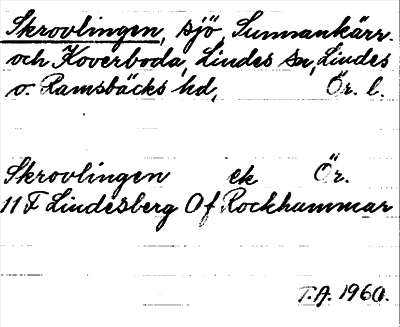 Skrovlingen, sjö, Sunnankärr.
och Koverboda, Lindes sn, Lindes
o. Ramsbäcks hd, Ör. l.
Skrovlingen ek Ör.
11 F Lindesberg Of Rockhammar
T.A. 1960.